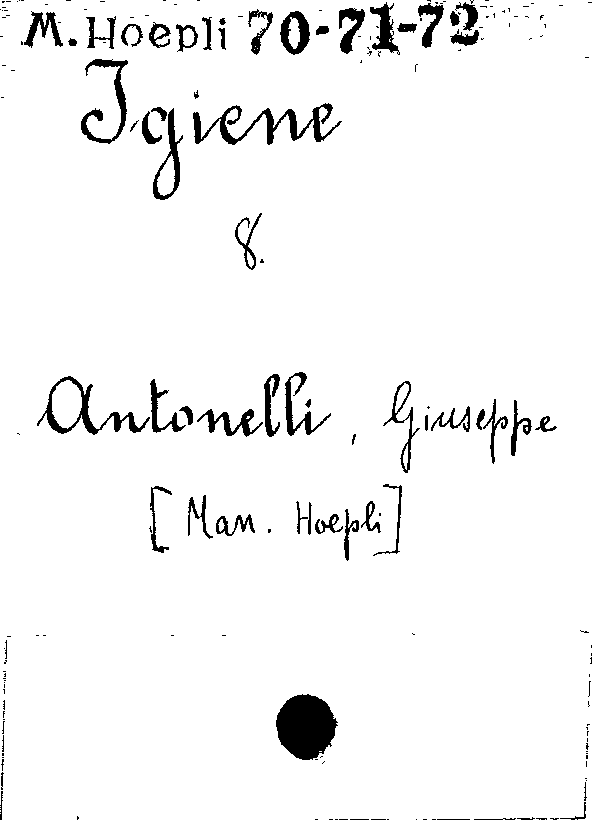 M. Hoepli 70-71-72
Igiene
8.
Antonelli, Giuseppe
[Man. Hoepli]